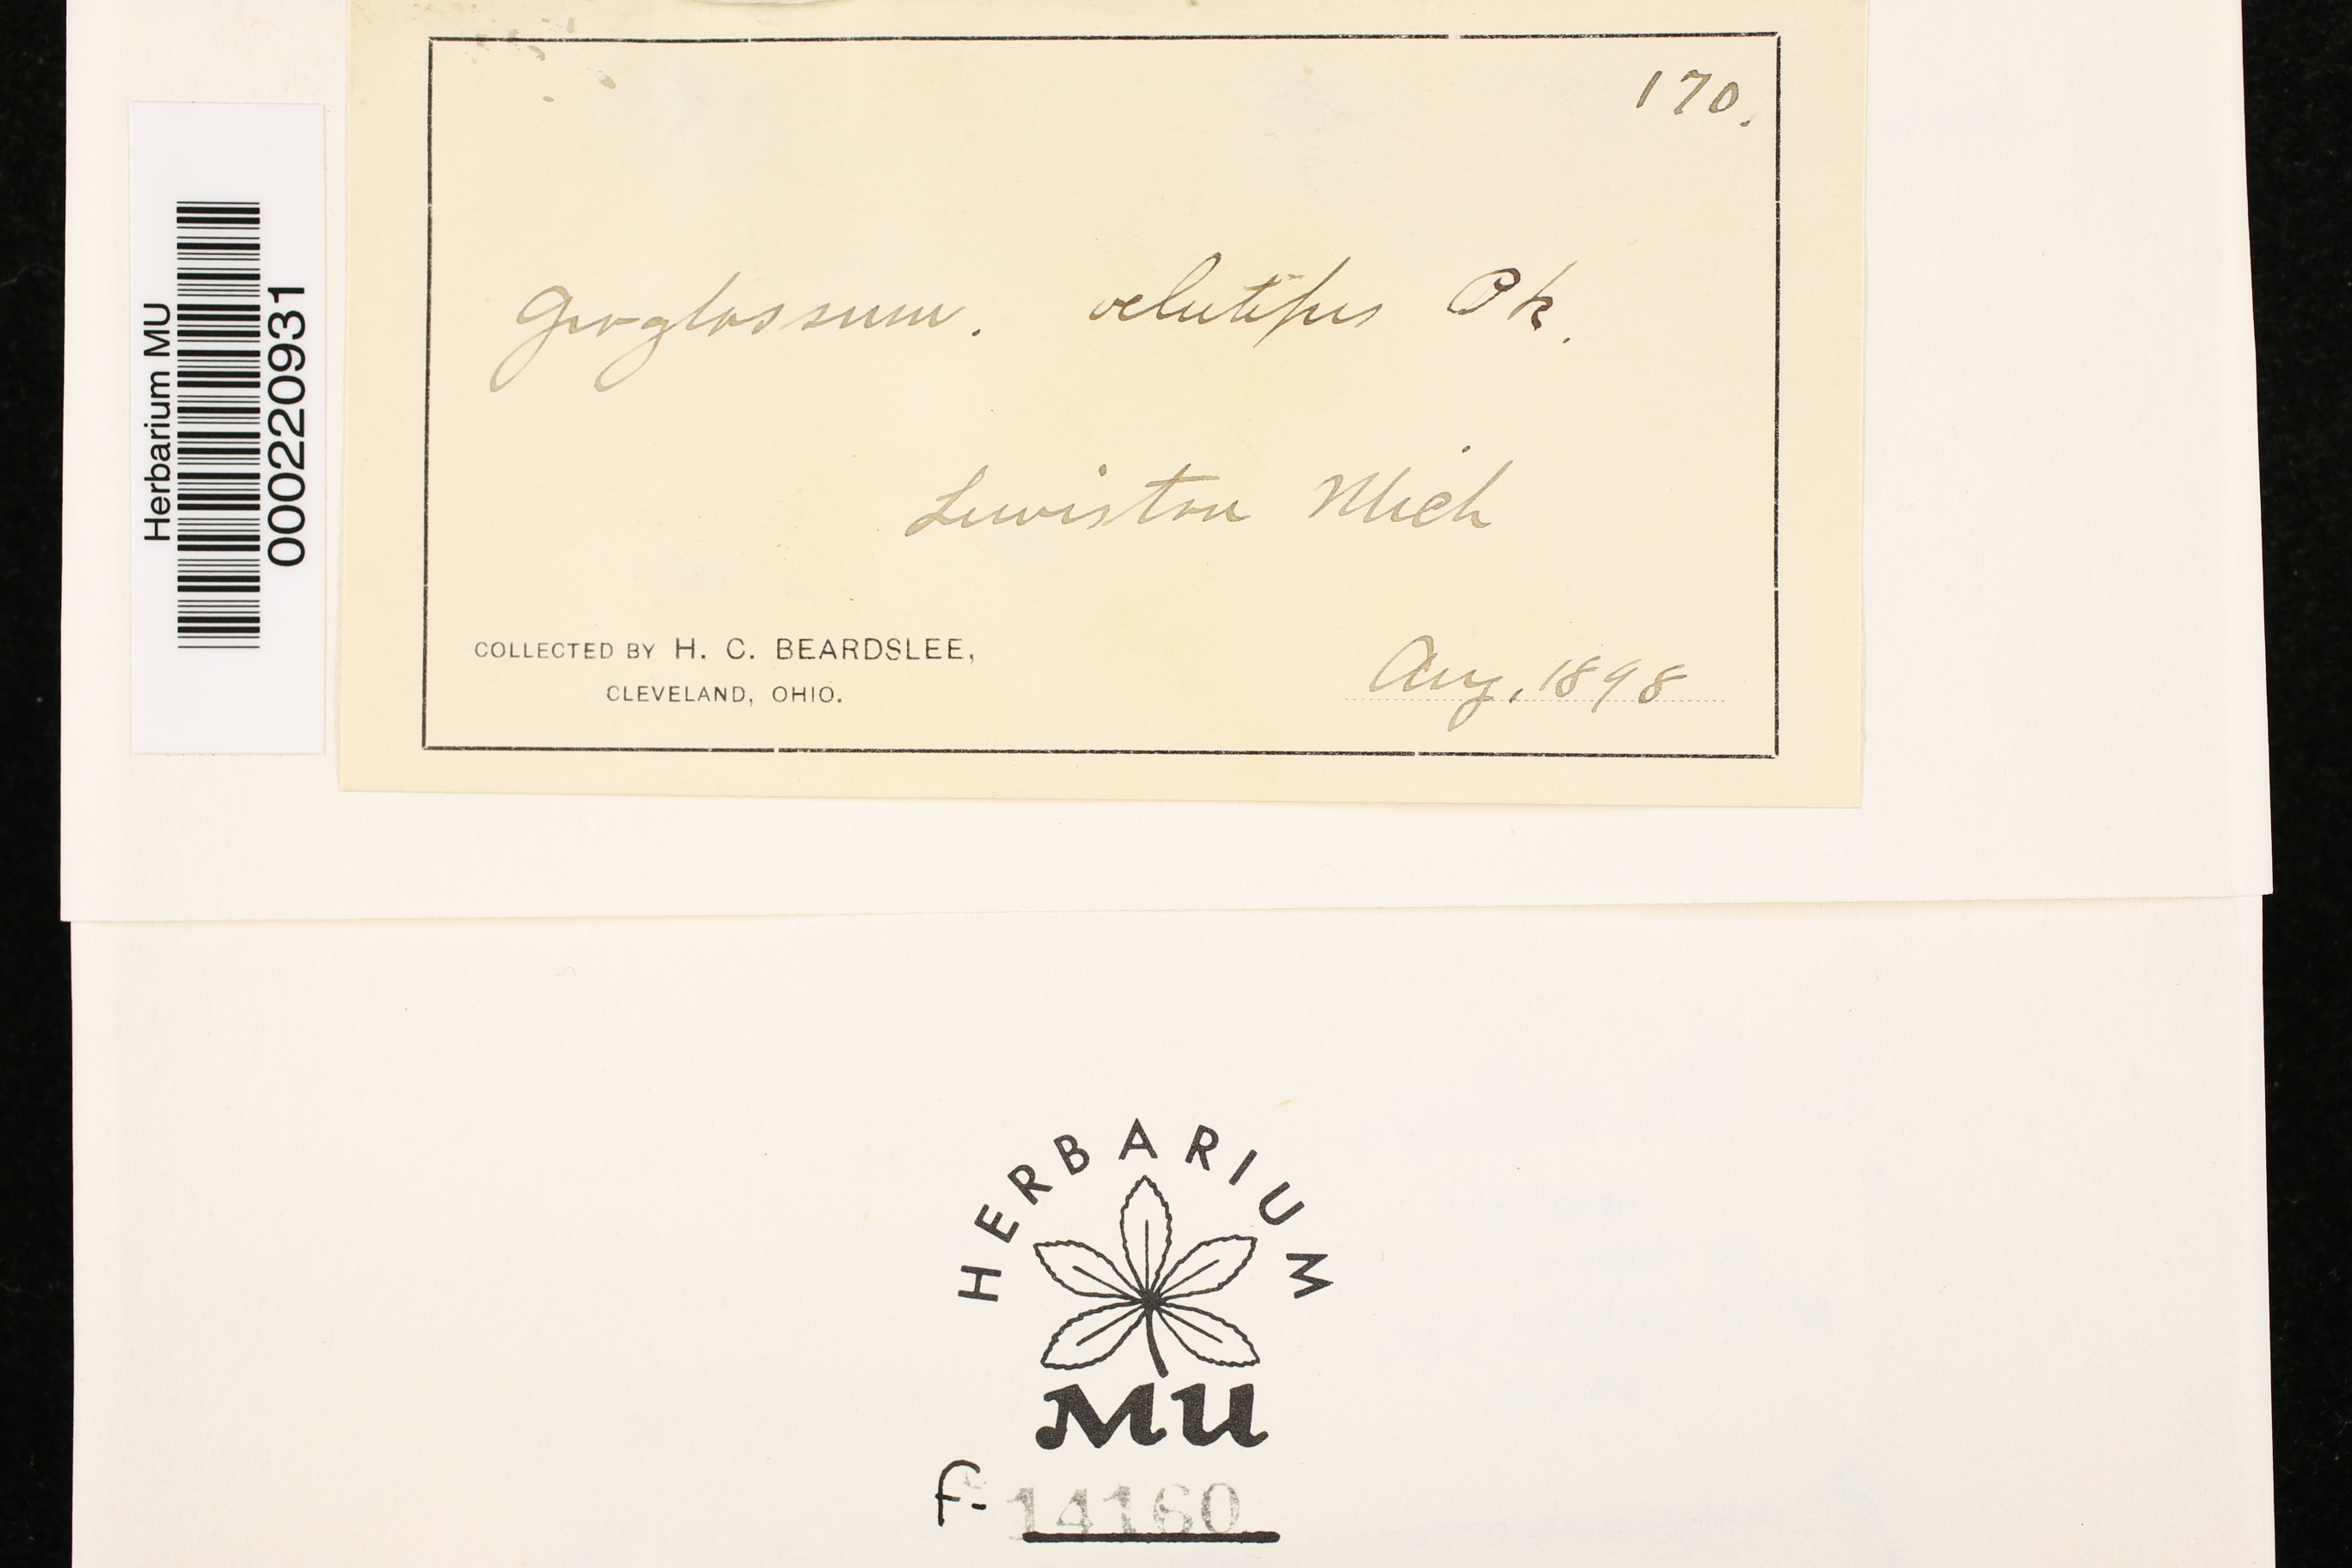 170.
Geoglossum. velutipes Pk.
Lewiston Mich
COLLECTED BY H. C. BEARDSLEE,
CLEVELAND, OHIO.
Aug, 1898
Herbarium MU
000220931
HERBARIUM
MU
F- 14160